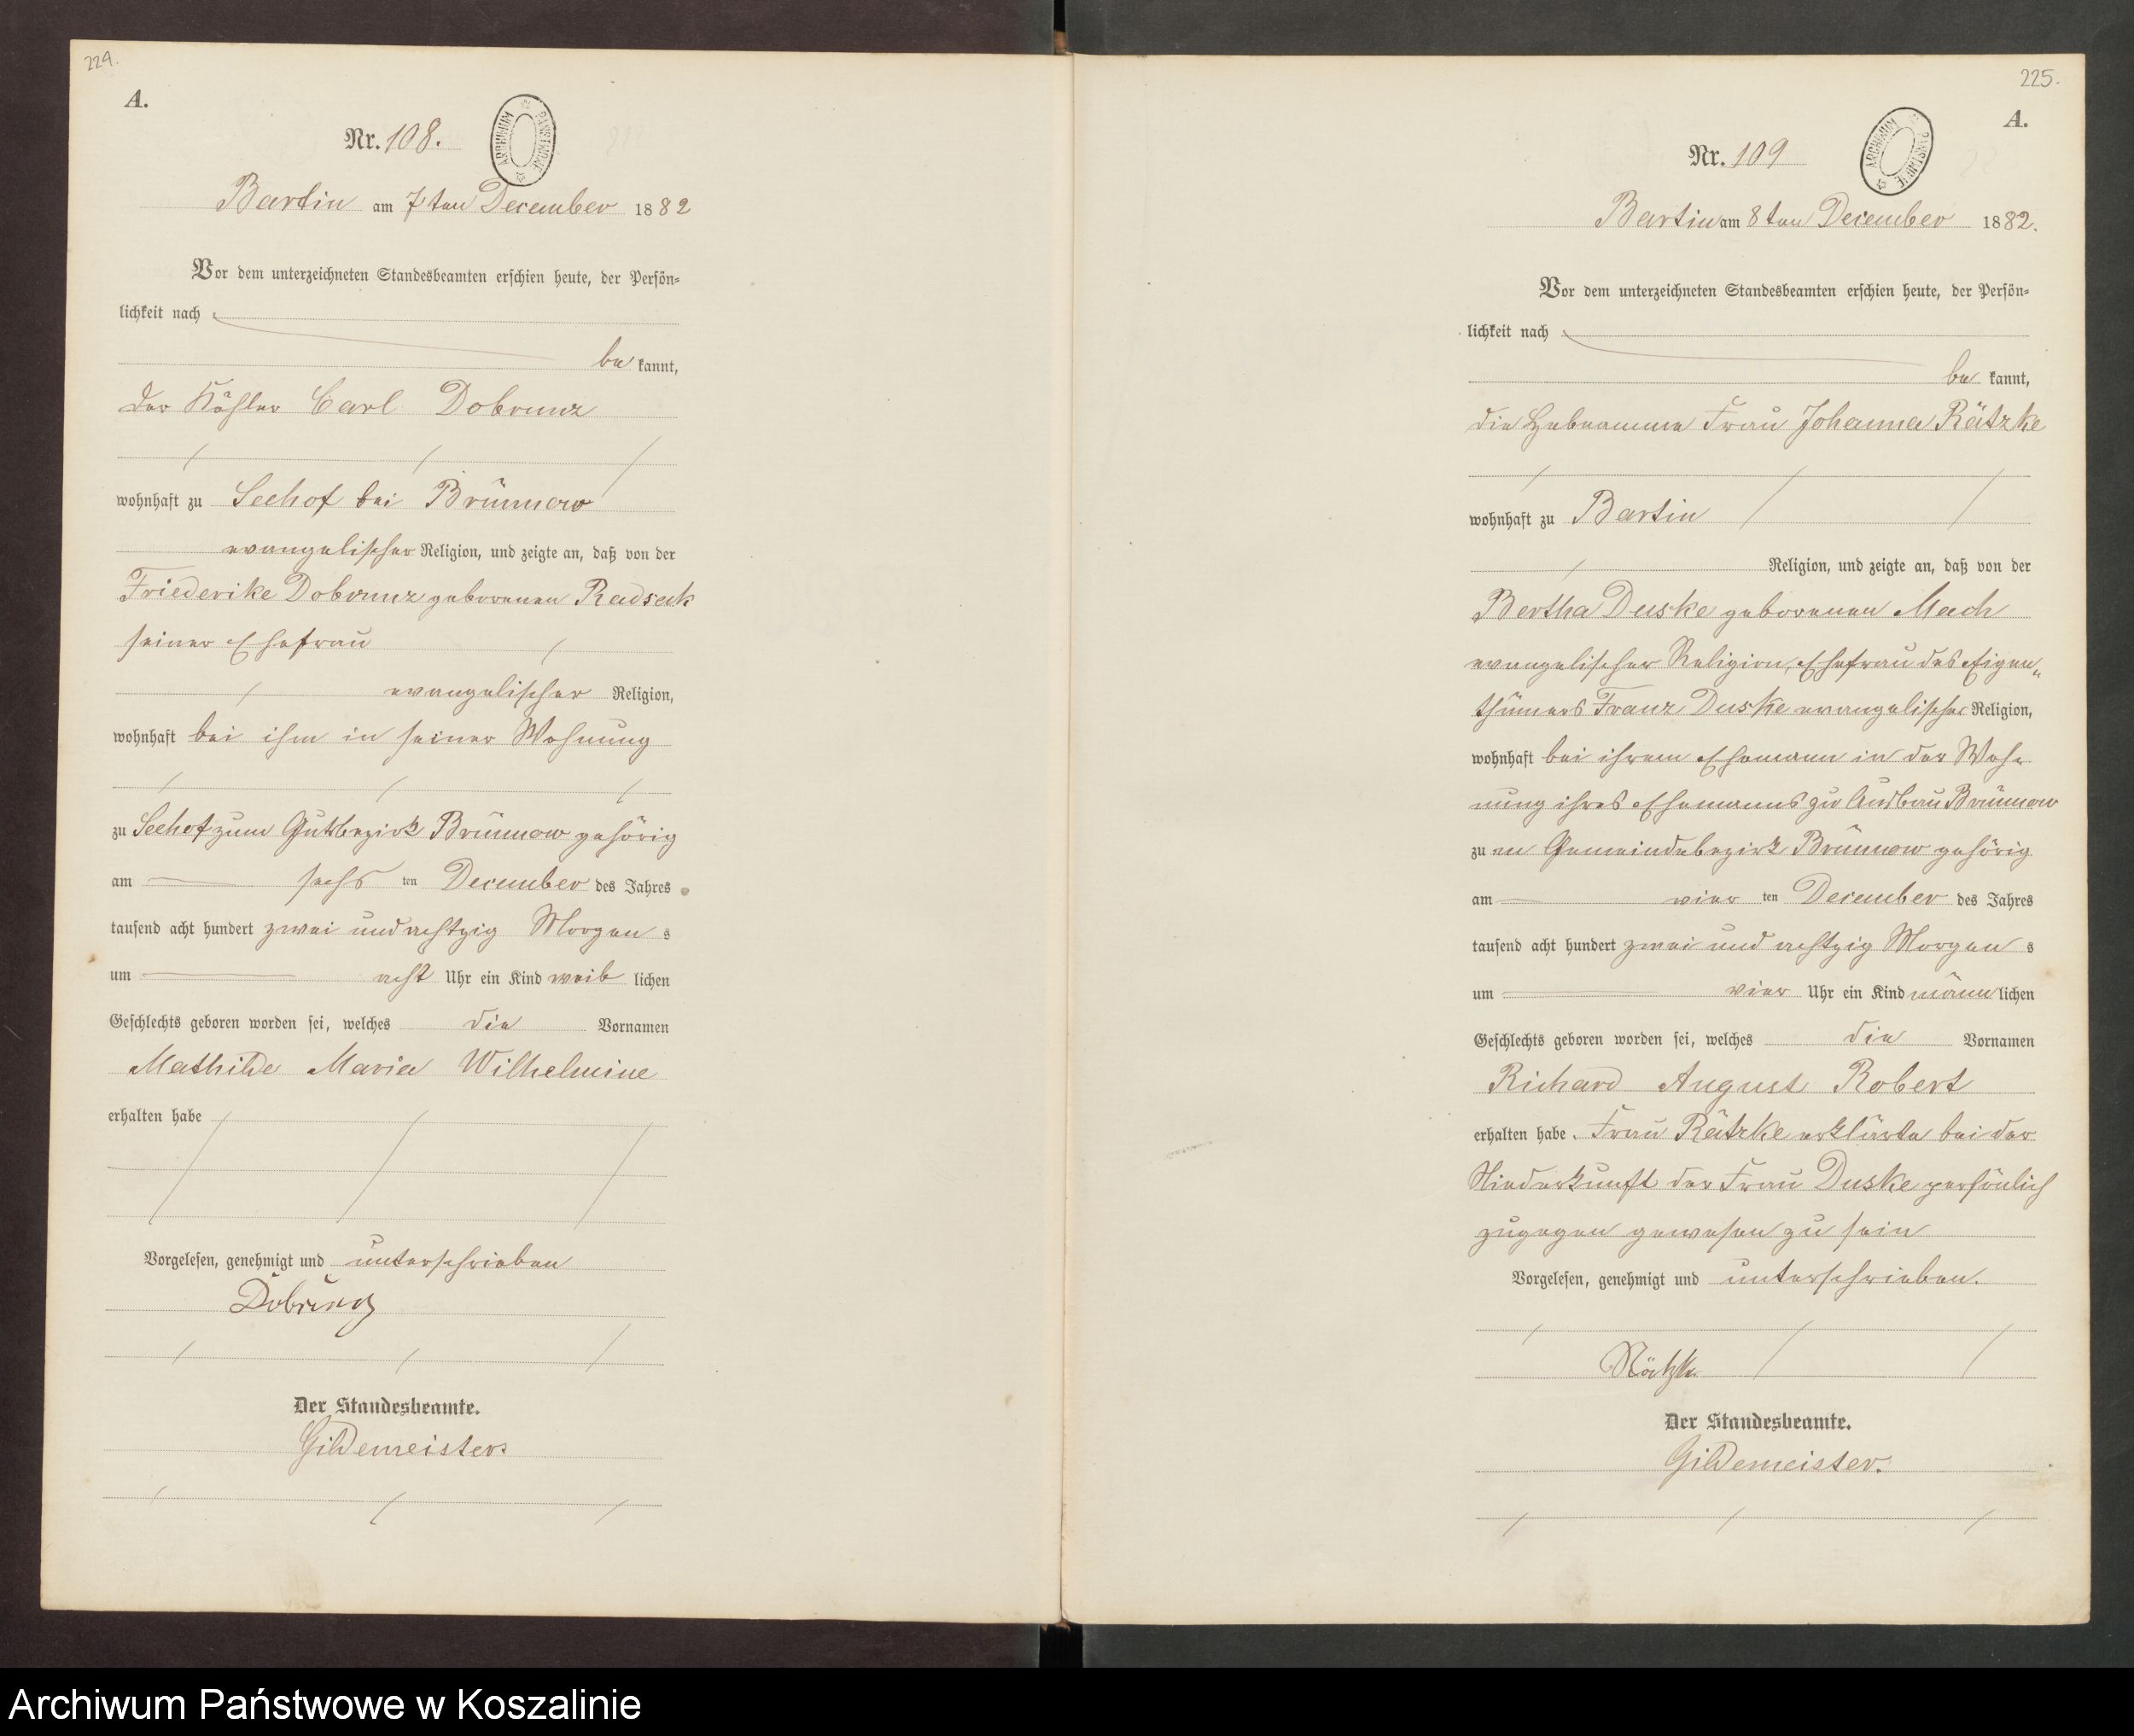 224.
A.
Nr. 108.
ARCHIWUM PAŃSTWOWE
Bartin am 7ten December 1882
Vor dem unterzeichneten Standesbeamten erschien heute, der Persön-
lichkeit nach
be kannt,
der Käthler Carl Dobrunz
wohnhaft zu Seehof bei Brünnow
evangelischer Religion, und zeigte an, daß von der
Friederike Dobrunz geborenen Radseck
seiner Ehefrau
evangelischer Religion,
wohnhaft bei ihm in seiner Wohnung
zu Seehof zum Gutsbezirk Brünnow gehörig
am sechs ten December des Jahres
tausend acht hundert zwei und achtzig Morgen s
um acht Uhr ein Kind weib lichen
Geschlechts geboren worden sei, welches die Vornamen
Mathilde Maria Wilhelmine
erhalten habe
Vorgelesen, genehmigt und unterschrieben
Dobrunz
Der Standesbeamte.
Gildemeister
225.
A.
Nr. 109
ARCHIWUM PAŃSTWOWE
Bartin am 8ten December 1882.
Vor dem unterzeichneten Standesbeamten erschien heute, der Persön-
lichkeit nach
be kannt,
die Hebeamme Frau Johanna Rätzke
wohnhaft zu Bartin
Religion, und zeigte an, daß von der
Bertha Duske geborenen Mach
evangelischer Religion, Ehefrau des Eigen„
thümers Franz Duske evangelischer Religion,
wohnhaft bei ihrem Ehemann in der Woh-
nung ihres Ehemanns zu Ausbau Brünnow
zu m Gemeindebezirk Brünnow gehörig
am vier ten December des Jahres
tausend acht hundert zwei und achtzig Morgen s
um vier Uhr ein Kind männ lichen
Geschlechts geboren worden sei, welches die Vornamen
Richard August Robert
erhalten habe. Frau Rätzke erklärte bei der
Niederkunft der Frau Duske persönlich
zugegen gewesen zu sein
Vorgelesen, genehmigt und unterschrieben.
Rätzke
Der Standesbeamte.
Gildemeister.
Archiwum Państwowe w Koszalinie